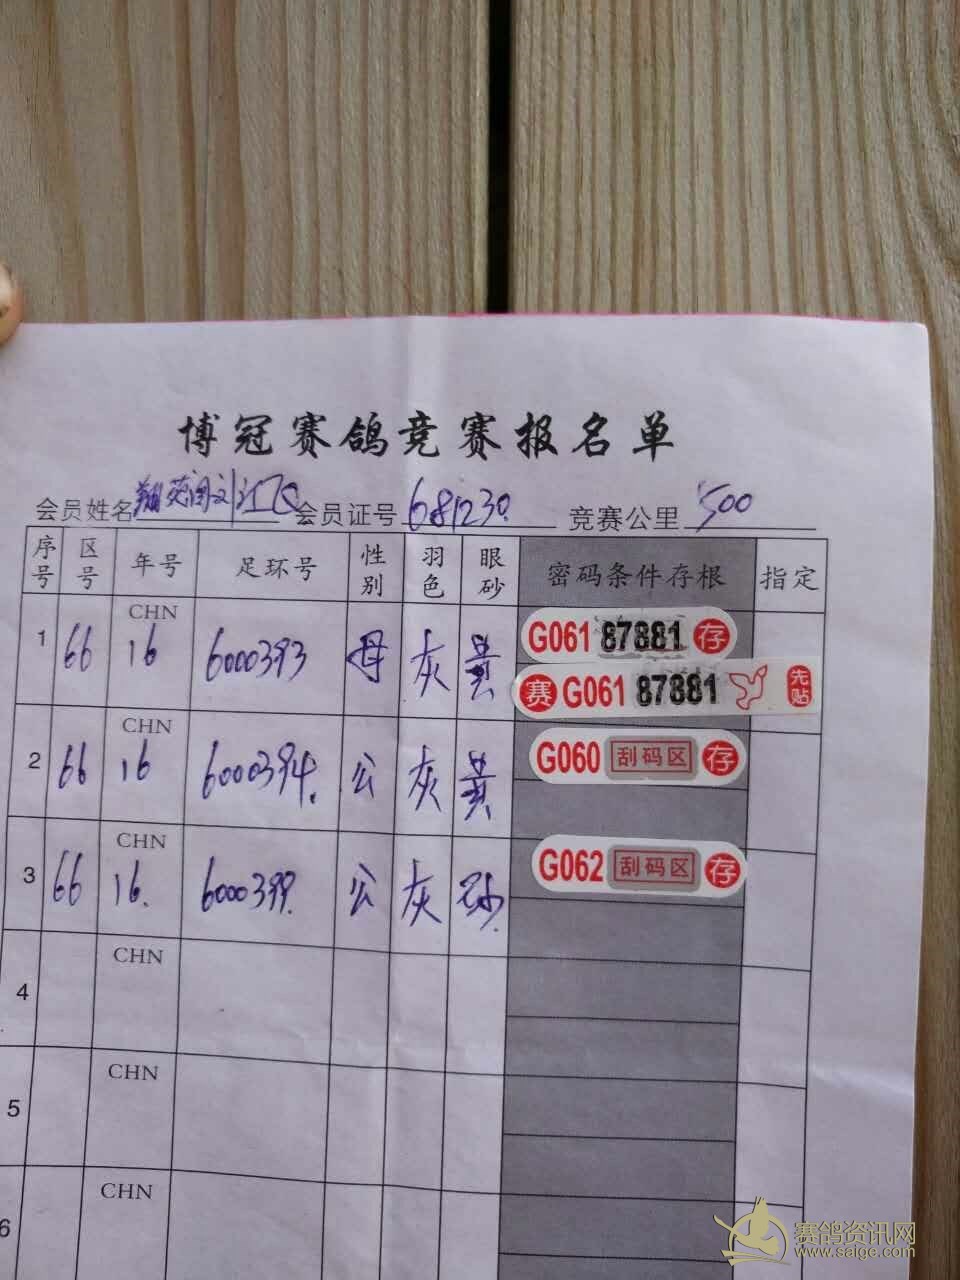 博冠赛鸽竞赛报名单
会员姓名 翔苑阁刘江飞 会员证号 681230 竞赛公里 500
序号 区号 年号 足环号 性别 羽色 眼砂 密码条件存根 指定
1 66 CHN 16 6000393 母 灰 黄 G061 87881 存
赛 G061 87881 先贴
2 66 CHN 16 6000394. 公 灰 黄 G060 刮码区 存
3 66 CHN 16. 6000399. 公 灰 砂. G062 刮码区 存
4 CHN
5 CHN
6 CHN
赛鸽资讯网
www.saige.com